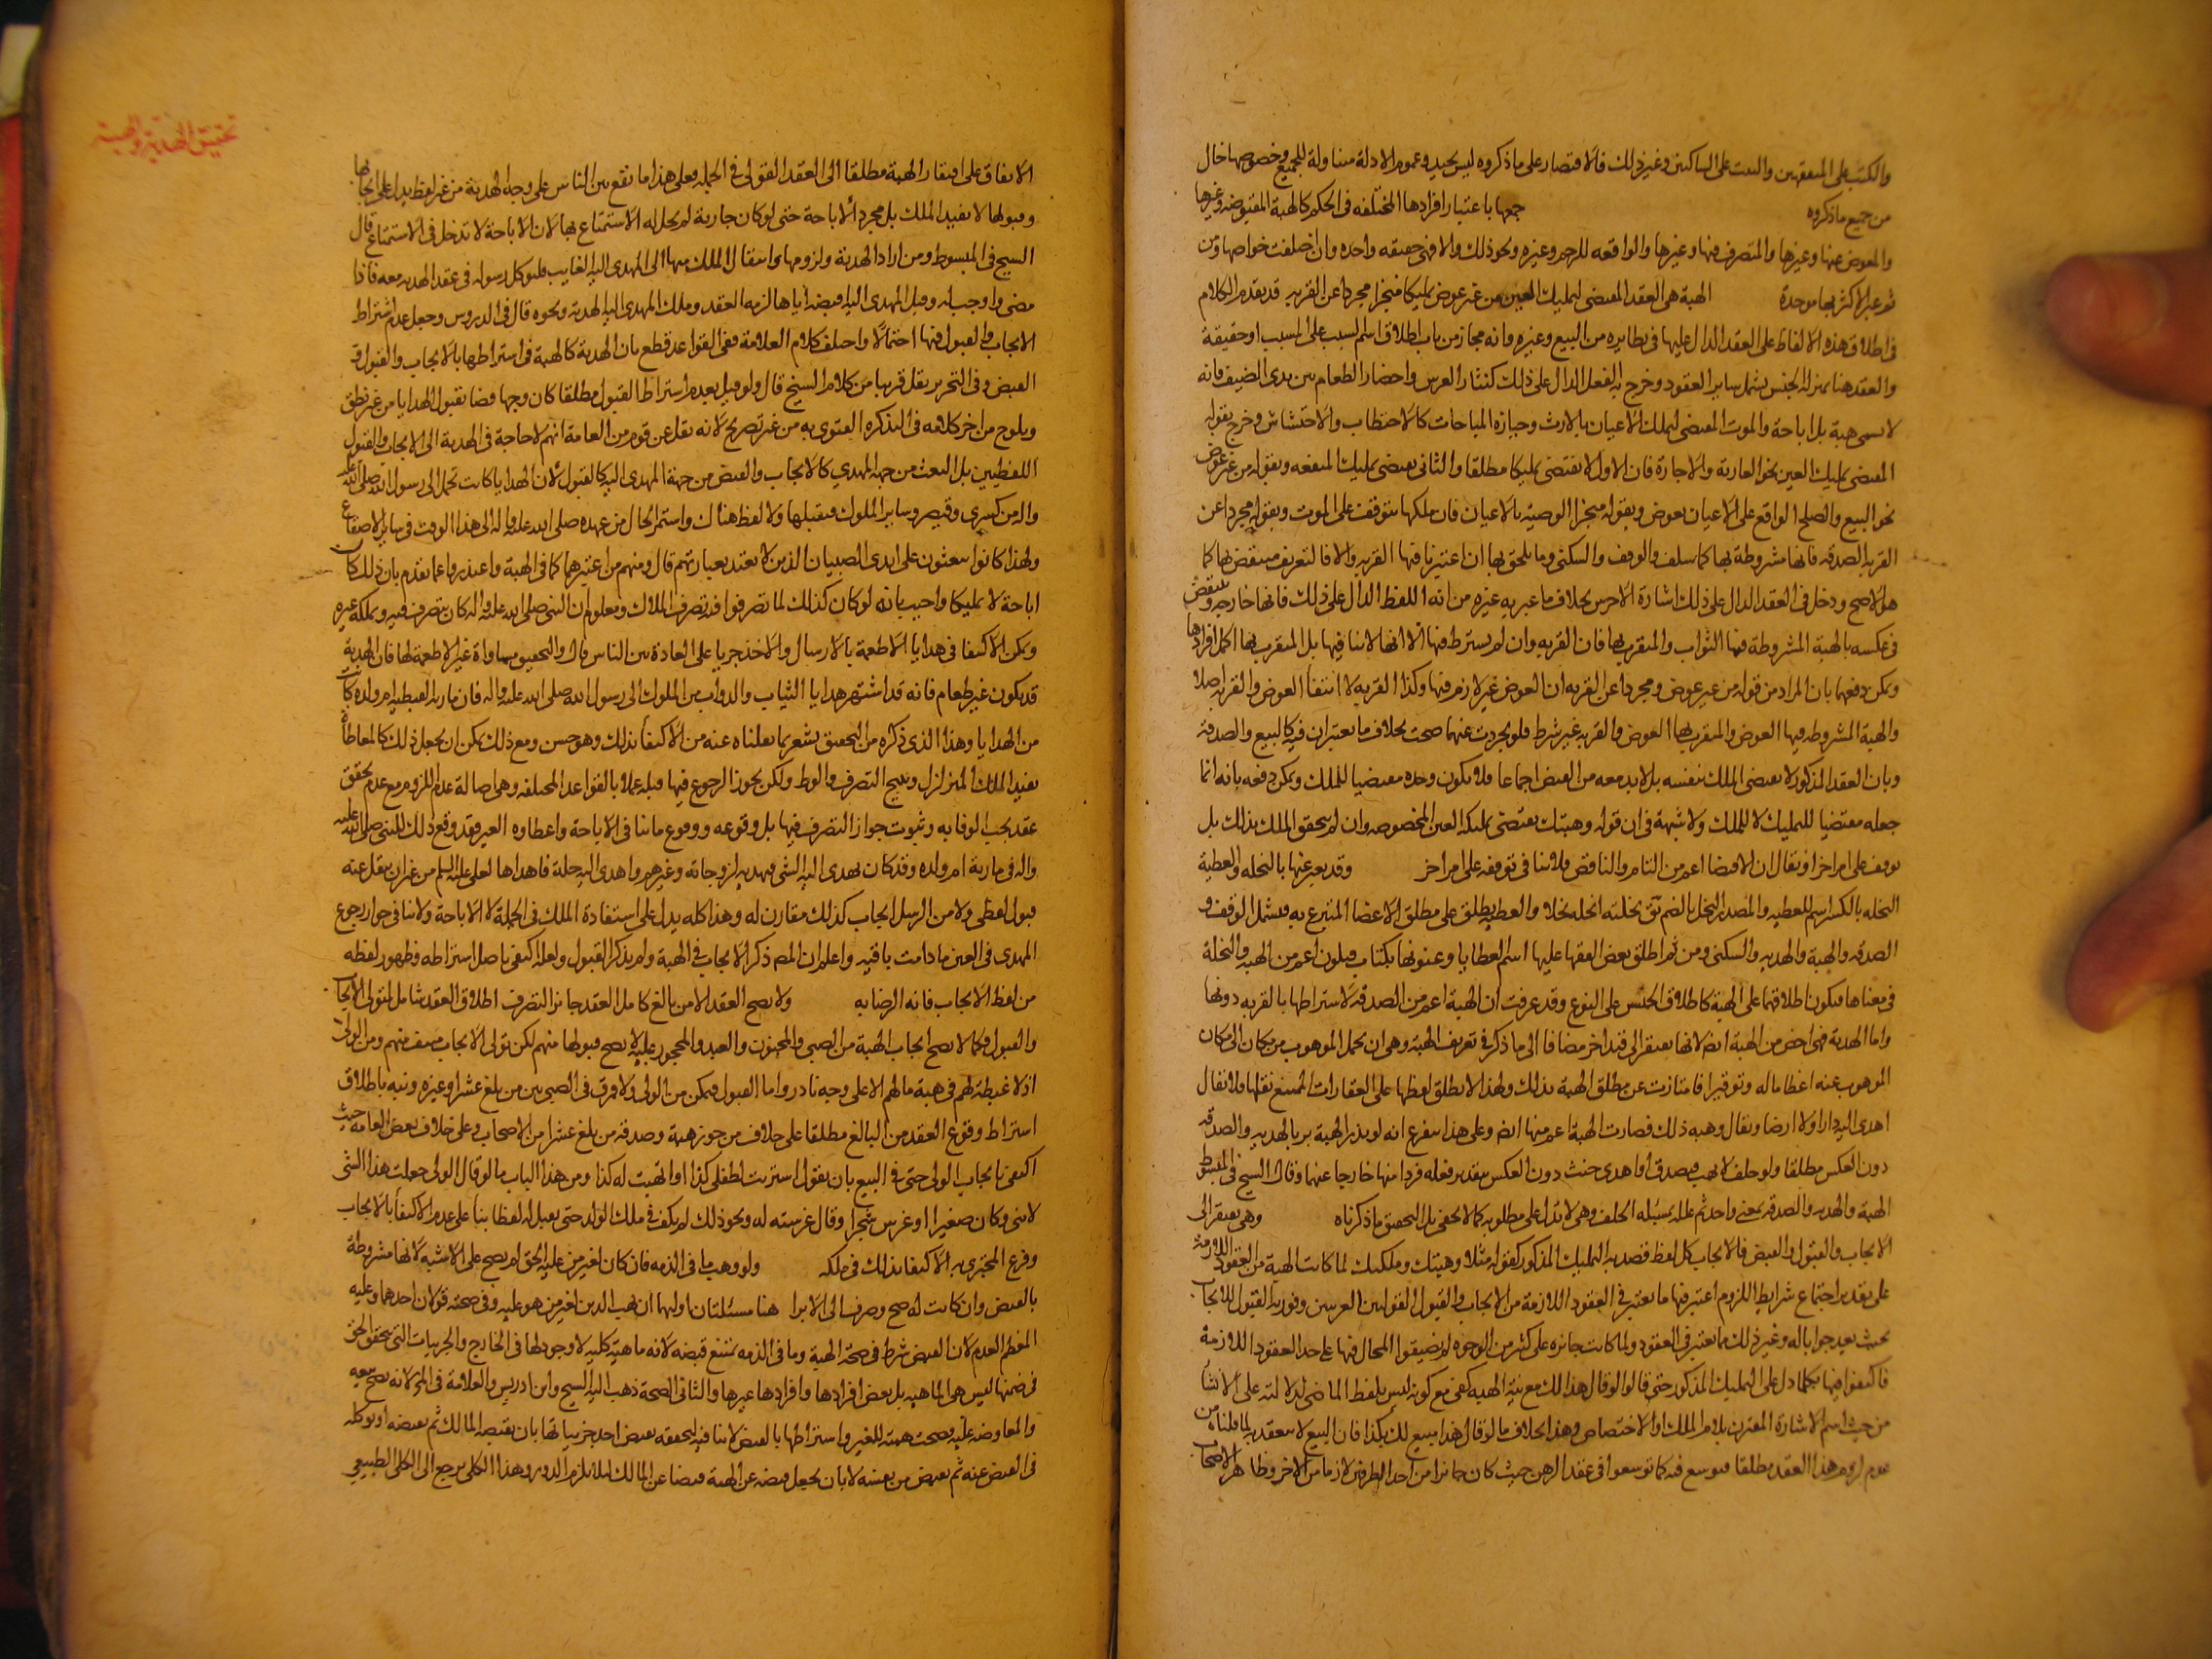 والكتب على المتفقهين والبيت على الساكنين وغير ذلك فالاقتصار على ما ذكروه ليس بجيد وعموم الادلة متناولة للجميع وخصوصها خال
من جميع ما ذكروه جمعها باعتبار افرادها المختلفه فى الحكم كالهبة المقبوضه وغيرها
والمعوض عنها وغيرها والمتصرف فيها وغيرها والواقعه للرحم وغيره ونحو ذلك والا فهى حقيقه واحده وان اختلفت خواصها ومن
ثم عبر الاكثر بها موحدة الهبة هى العقد المقتضى لتمليك العين من غير عوض تمليكا منجزا مجردا عن القربه قد تقدم الكلام
فى اطلاق هذه الالفاظ على العقد الدال عليها فى نظايره من البيع وغيره وانه مجاز من باب اطلاق اسم السبب على المسبب او حقيقة
والعقد هنا بمنزلة الجنس يشمل ساير العقود وخرج به الفعل الدال على ذلك كنثار العرس واحضار الطعام بين يدى الضيف فانه
لا يسمى هبة بل اباحة والموت المقتضى لتملك الاعيان بالارث وحيازه المباحات كالاحتطاب والاحتشاش وخرج بقوله
المقتضى تمليك العين نحو العارية والاجارة فان الاول لا يقتضى تمليكا مطلقا والثانى يقتضى تمليك المنفعه وبقوله من غير عوض
نحو البيع والصلح الواقع على الاعيان بعوض وبقوله منجزا الوصيه بالاعيان فان ملكها يتوقف على الموت وبقوله مجردا عن
القربه الصدقه فانها مشروطة بها كما سلف والوقف والسكنى وما يلحق بها ان اعتبرنا فيها القربه والا فالتعريف منتقض بها كما
هو الاصح ودخل فى العقد الدال على ذلك اشارة الاخرس بخلاف ما عبر به غيره من انه اللفظ الدال على ذلك فانها خارجه وينتقض
فى عكسه بالهبة المشروطة فيها الثواب والمتقرب بها فان القربه وان لم يشترط فيها الا انها لا ينافيها بل المتقرب بها اكمل افرادها
ويمكن دفعهما بان المراد من قوله من غير عوض ومجردا عن القربه ان العوض غير لازم فيها وكذا القربه لا انتفا العوض والقربه اصلا
والهبة المشروطه فيها العوض والمتقرب بها العوض والقربه غير شرط فلو تجردت عنهما صحت بخلاف ما يعتبران فيه كالبيع والصدقة
وبان العقد المذكور لا يقتضى الملك بنفسه بل لا بد معه من القبض اجماعا فلا يكون وحده مقتضيا للملك ويمكن دفعه بانه انما
جعله مقتضيا للتمليك لا للملك ولا شبهة فى ان قوله وهبتك يقتضى تمليكه العين المخصوصه وان لم يتحقق الملك بذلك بل
توقف على امر اخر او يقال ان الاقتضا اعم من التام والناقص فلا ينافى توقفه على امر اخر وقد يعبر عنها بالنحله والعطية
النحله بالكسر اسم للعطيه والمصدر النحل بالضم تق نحلته انحله نحلا والعطيه يطلق على مطلق الاعطا المتبرع به فيشمل الوقف و
الصدقه والهبة والهديه والسكنى ومن ثم اطلق بعض الفقها عليها اسم العطايا وعنونها بكتاب فيكون اعم من الهبه والنحلة
فى معناها فيكون اطلاقهما على الهبة كاطلاق الجنس على النوع وقد عرفت ان الهبة اعم من الصدقه لاشتراطها بالقربه دونها
واما الهدية فهى اخص من الهبة ايضا لانها تفتقر الى قيد اخر مضافا الى ما ذكر فى تعريف الهبة وهى ان يحمل الموهوب من مكان الى مكان
الموهوب عنه اعظاما له وتوقيرا فامتازت عن مطلق الهبة بذلك ولهذا لا يطلق لفظها على العقارات الممتنع نقلها فلا يقال
اهدى اليه دارا ولا ارضا ويقال وهبه ذلك فصارت الهبة اعم منها ايضا وعلى هذا يتفرع انه لو نذر الهبة بر بالهديه والصدقه
دون العكس مطلقا ولو حلف لا يهب فتصدق او اهدى حنث دون العكس بتقدير فعله فردا منها خارجا عنهما وقال الشيخ فى المبسوط
الهبة والهديه والصدقه بمعنى واحد ثم علله بمسئله الحلف وهى لا تدل على مطلوبه كما لا يخفى بل التحقيق ما ذكرناه وهى تفتقر الى
الايجاب والقبول والقبض فالايجاب كل لفظ قصد به التمليك المذكور كقوله مثلا وهبتك وملكتك لما كانت الهبة من العقود اللازمة
على تقدير اجتماع شرايط اللزوم اعتبر فيها ما يعتبر فى العقود اللازمة من الايجاب والقبول القوليين العربيين وفورية القبول للايجاب
بحيث يعد جوابا له وغير ذلك مما يعتبر فى العقود ولما كانت جائزه على كثير من الوجوه لم يضيقوا المجال فيها على حد العقود اللازمة
فاكتفوا فيها بكل ما دل على التمليك المذكور حتى قالوا لو قال هذا لك مع نية الهبه كفى مع كونه ليس بلفظ الماضى لدلالته على الانشا
من حيث اسم الاشارة المقترن بلام الملك او الاختصاص وهذا بخلاف ما لو قال هذا مبيع لك بكذا فان البيع لا ينعقد به لما قلناه من
عدم لزوم هذا العقد مطلقا فتوسع فيه كما توسعوا فى عقد الرهن حيث كان جائزا من احد الطرفين لازما من الاخر وظاهر الاصحاب
تحقيق الهدية والهبة
الاتفاق على افتقار الهبة مطلقا الى العقد القولى فى الجملة وعلى هذا ما يقع بين الناس على وجه الهدية من غير لفظ يدل على ايجابها
وقبولها لا يفيد الملك بل مجرد الاباحة حتى لو كان جارية لم يحل له الاستمتاع بها لان الاباحة لا تدخل فى الاستمتاع قال
الشيخ فى المبسوط ومن اراد الهدية ولزومها وانتقال الملك منها الى المهدى اليه الغايب فليوكل رسوله فى عقد الهديه معه فاذا
مضى واوجب له وقبل المهدى اليه اقبضه اياها لزم العقد وملك المهدى اليه الهدية ونحوه قال فى الدروس وجعل عدم اشتراط
الايجاب والقبول فيها احتمالا واختلف كلام العلامة ففى القواعد قطع بان الهدية كالهبة فى اشتراطها بالايجاب والقبول و
القبض وفى التحرير نقل قريبا من كلام الشيخ قال ولو قيل بعدم اشتراط القبول مطلقا كان وجها قضا بقبول الهدايا من غير نطق
ويلوح من اخر كلامه فى التذكره الفتوى به من غير تصريح لانه نقل عن قوم من العامة انهم لا حاجة فى الهدية الى الايجاب والقبول
اللفظيين بل البعث من جهة المهدي كالايجاب والقبض من جهة المهدى اليه كالقبول لان الهدايا كانت تحمل الى رسول الله صلى الله عليه
واله من كسرى وقيصر وساير الملوك فيقبلها ولا لفظ هناك واستمر الحال من عهده صلى الله عليه واله الى هذا الوقت فى ساير الاصقاع
ولهذا كانوا يبعثون على ايدى الصبيان الذين لا يعتد بعبارتهم قال ومنهم من اعتبرهما كما فى الهبة واعتذروا عما تقدم بان ذلك كان
اباحة لا تمليكا واجيب بانه لو كان كذلك لما تصرفوا فيه تصرف الملاك ومعلوم ان النبى صلى الله عليه واله كان يتصرف فيه ويملكه غيره
ويمكن الاكتفا فى هدايا الاطعمة بالارسال والاخذ جريا على العادة بين الناس قال والتحقيق مساواة غير الاطعمة لها فان الهدية
قد يكون غير طعام فانه قد اشتهر هدايا الثياب والدواب من الملوك الى رسول الله صلى الله عليه واله فان مارية القبطيه ام ولده كانت
من الهدايا وهذا الذى ذكره من التحقيق يشعر بما نقلناه عنه من الاكتفا بذلك وهو حسن ومع ذلك يمكن ان يجعل ذلك كالمعاطاة
يفيد الملك المتزلزل ويبيح التصرف والوطى ولكن يجوز الرجوع فيها قبله عملا بالقواعد المختلفه وهى اصالة عدم اللزوم مع عدم تحقق
عقد يجب الوفا به وثبوت جواز التصرف فيها بل وقوعه ووقوع ما ينافى الاباحة واعطاوه الغير فقد وقع ذلك للنبى صلى الله عليه
واله فى مارية ام ولده وقد كان يهدى اليه الشى فيهديه لزوجاته وغيرهم واهدى اليه حلة فاهداها لعلى عليه السلم من غير ان ينقل عنه
قبول لفظى ولا من الرسل ايجاب كذلك مقارن له وهذا كله يدل على استفادة الملك فى الجملة لا الاباحة ولا ينافى جواز رجوع
المهدى فى العين ما دامت باقيه واعلم ان المص ذكر الايجاب فى الهبة ولم يذكر القبول ولعله اكتفى باصل اشتراطه وظهور لفظه
من لفظ الايجاب فانه الرضا به ولا يصح العقد الا من بالغ كامل العقد جائز التصرف اطلاق العقد شامل لمتولى الايجاب
والقبول فكما لا يصح ايجاب الهبة من الصبى والمجنون والعبد والمحجور عليه لا يصح قبولها منهم لكن تولى الايجاب منتف منهم ومن الولى
اذ لا غبطة لهم فى هبة مالهم الا على وجه نادر واما القبول فيمكن من الولى ولا فرق فى الصبى بين من بلغ عشرا وغيره ونبه باطلاق
اشتراط وقوع العقد من البالغ مطلقا على خلاف من جوز هبة وصدقة من بلغ عشرا من الاصحاب وعلى خلاف بعض العامه حيث
اكتفى بايجاب الولى حتى فى البيع بان يقول اشتريت لطفلى كذا او اتهبت له كذا ومن هذا الباب ما لو قال الولى جعلت هذا الشى
لابنى وكان صغيرا او غرس شجرا وقال غرسته له ونحو ذلك لم يكف فى ملك الولد حتى يقبل له لفظا بنا على عدم الاكتفا بالايجاب
وفرع المجتزى به الاكتفا بذلك فى ملكه ولو وهب ما فى الذمه فان كان لغير من عليه الحق لم يصح على الاشبه لانها مشروطة
بالقبض وان كانت له صح وصرف الى الابرا هنا مسئلتان اولهما ان يهب الدين لغير من هو عليه وفى صحته قولان احدهما وعليه
المعظم العدم لان القبض شرط فى صحة الهبة وما فى الذمه يمتنع قبضه لانه ماهية كليه لا وجود لها فى الخارج والجزييات التى يتحقق الحق
فى ضمنها ليس هى الماهيه بل بعض افرادها وافرادها غيرها والثانى الصحة ذهب اليه الشيخ وابن ادريس والعلامة فى المخ لانه يصح بيعه
والمعاوضه عليه فصحت هبته للغير واشتراطها بالقبض لا ينافيه لتحققه بقبض احد جزيياتها بان يقبضه المالك ثم يقبضه او يوكله
فى القبض عنه ثم يقبض من نفسه لا بان يجعل قبضه عن الهبة قبضا عن المالك لئلا يلزم الدور وهذا الكلى يرجع الى الكلى الطبيعى